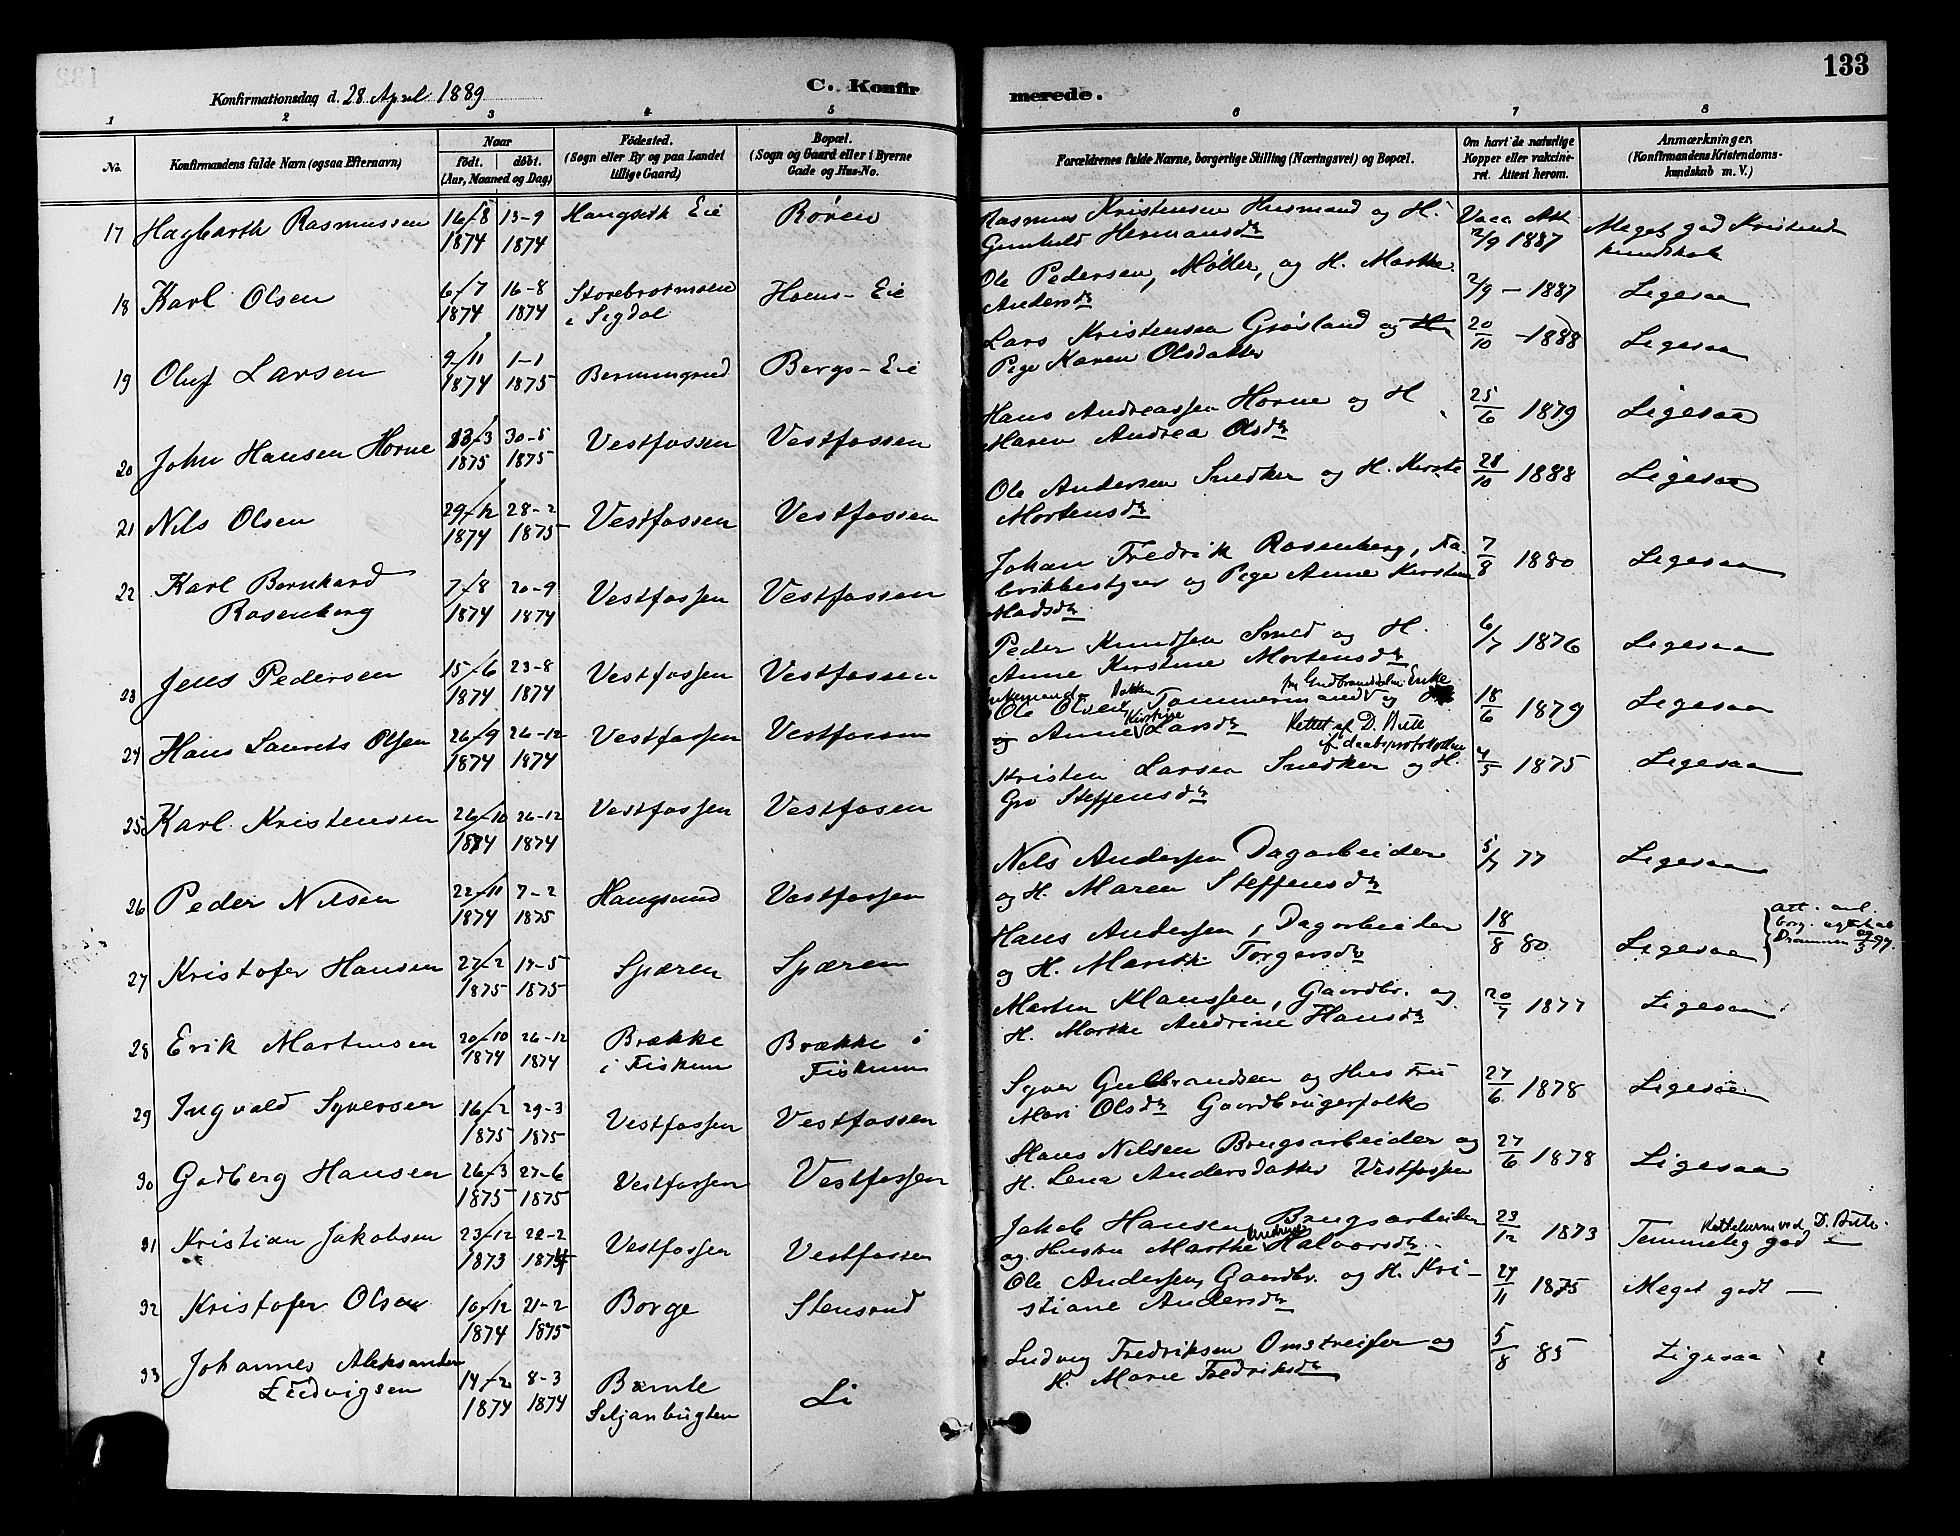 133
Konfirmationsdag d. 28 April 1889
C. Konfirmerede.
1 2 3 4 5 6 7 8
No.
Konfirmandens fulde Navn (ogsaa Efternavn)
Naar
födt. döbt.
(Aar, Maaned og Dag)
Födested.
(Sogn eller By og paa Landet
tillige Gaard)
Bopæl.
(Sogn og Gaard eller i Byerne
Gade og Hus-No.
Forældrenes fulde Navne, borgerlige Stilling (Næringsvei) og Bopæl.
Om havt de naturlige
Kopper eller vakcine-
ret. Attest herom.
Anmærkninger.
(Konfirmandens Kristendoms-
kundskab m. V.)
17 Hagbarth Rasmussen 16-8 1874 13-9 1874 Eie Røren
Rasmus Kristensen Husmand og H.
Gunhild Hermansdr
Vacc Att 2/9 1887
Meget god Kristend
kundskab
18 Karl Olsen 6-7 1874 16-8 1874
i Sigdal
Hoens-Eie
Ole Pedersen, Møller, og H. Marthe
Andersdr
2/9 - 1887 Ligesaa
19 Oluf Larsen 9-11 1874 1-1 1875 Bergs-Eie
Lars Kristensen Grøsland og
Pige Karen Olsdatter
20/10 - 1888 Ligesaa
20 John Hansen Horne 13-3 1875 30-5 1875 Vestfossen Vestfossen
Hans Andreassen Horne og H
Maren Andrea Olsdr
25/6 1879 Ligesaa
21 Nils Olsen 29-12 1874 28-2 1875 Vestfossen Vestfossen
Ole Andersen Snedker og H. Kirsti
Mortensdr
28/10 1888 Ligesaa
22 Karl Bernhard
Rosenberg
7-8 1874 20-9 1874 Vestfossen Vestfossen
Johan Fredrik Rosenberg, Fa-
brikbestyrer og Pige Anne Kirstine
Madsdr
7/8 1880 Ligesaa
23 Jens Pedersen 15-6 1874 23-8 1874 Vestfossen Vestfossen
Peder Knudsen Smed og H.
Anne Kirstine Mortensdr
6/7 1876 Ligesaa
24 Hans Laurits Olsen 26-9 1874 26-12 1874 Vestfossen Vestfossen
Ole Olsen Tømmermand og Enke
og Anne Kirstine Larsdr Rettet af D. Bull
18/6 1879 Ligesaa
25 Karl Kristensen 26-10 1874 26-12 1874 Vestfossen Vestfosen
Kristen Larsen Snedker og H.
Gro Steffensdr
4/5 1875 Ligesaa
26 Peder Nilsen 22-11 1874 7-2 1875 Haugsund Vestfossen
Nels Andersen Dagarbeider
og H. Maren Steffensdr
5/7 77 Ligesaa
27 Kristofer Hansen 27-2 1875 17-5 1875 Spæren Spæren
Hans Andersen, Dagarbeider
og H. Marthe Torgersdr
18/8 80 Ligesaa
28 Erik Martinsen 20-10 1874 26-12 1874
Brække
i Fiskum
Brække i
Fiskum
Martin Klaussen, Gaardbr. og
H. Marthe Andrine Hansdr
20/7 1877 Ligesaa
29 Ingvald Syversen 16-2 1875 29-3 1875 Vestfossen Vestfossen
Syver Gulbrandsen og Hustru
Mari Olsdr Gaardbrugerfolk
27/6 1878 Ligesaa
30 Godberg Hansen 26-3 1875 27-6 1875 Vestfossen Vestfossen
Hans Nilsen Brugsarbeider og
H. Lena Andersdatter Vestfossen
27/6 1878 Ligesaa
31 Kristian Jakobsen 23-12 1873 22-2 1874 Vestfossen Vestfossen
Jakob Hansen Brugsarbeider
og Hustru Marthe Andrine Halvorsdr.
23/12 1873
Temmelig god
32 Kristofer Olsen 10-12 1874 21-2 1875 Borge Stensrud
Ole Andersen, Gaardbr. og H. Kri-
stiane Andersdr
27/11 1875 Meget godt
33 Johannes Aleksander
Ludvigsen
14-2 1874 8-3 1874
Bamle
Seljanbugten
Li
Ludvig Fredriksen Omstreifer og
H. Marie Fredriksdr
5/8 85 Ligesaa